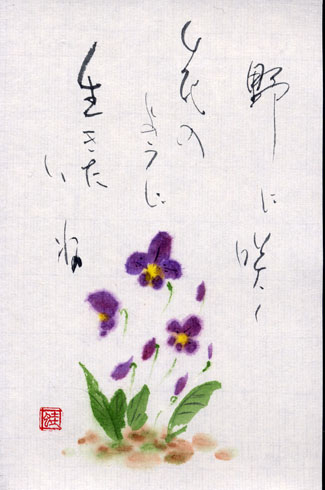 野に咲く
花の
ように
生きた
いね